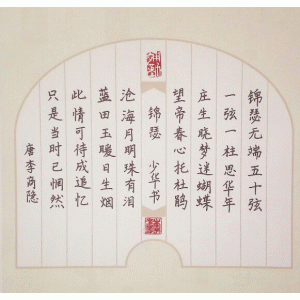 锦瑟无端五十弦
一弦一柱思华年
庄生晓梦迷蝴蝶
望帝春心托杜鹃
锦瑟 少华书
沧海月明珠有泪
蓝田玉暖日生烟
此情可待成追忆
只是当时已惘然
唐李商隐